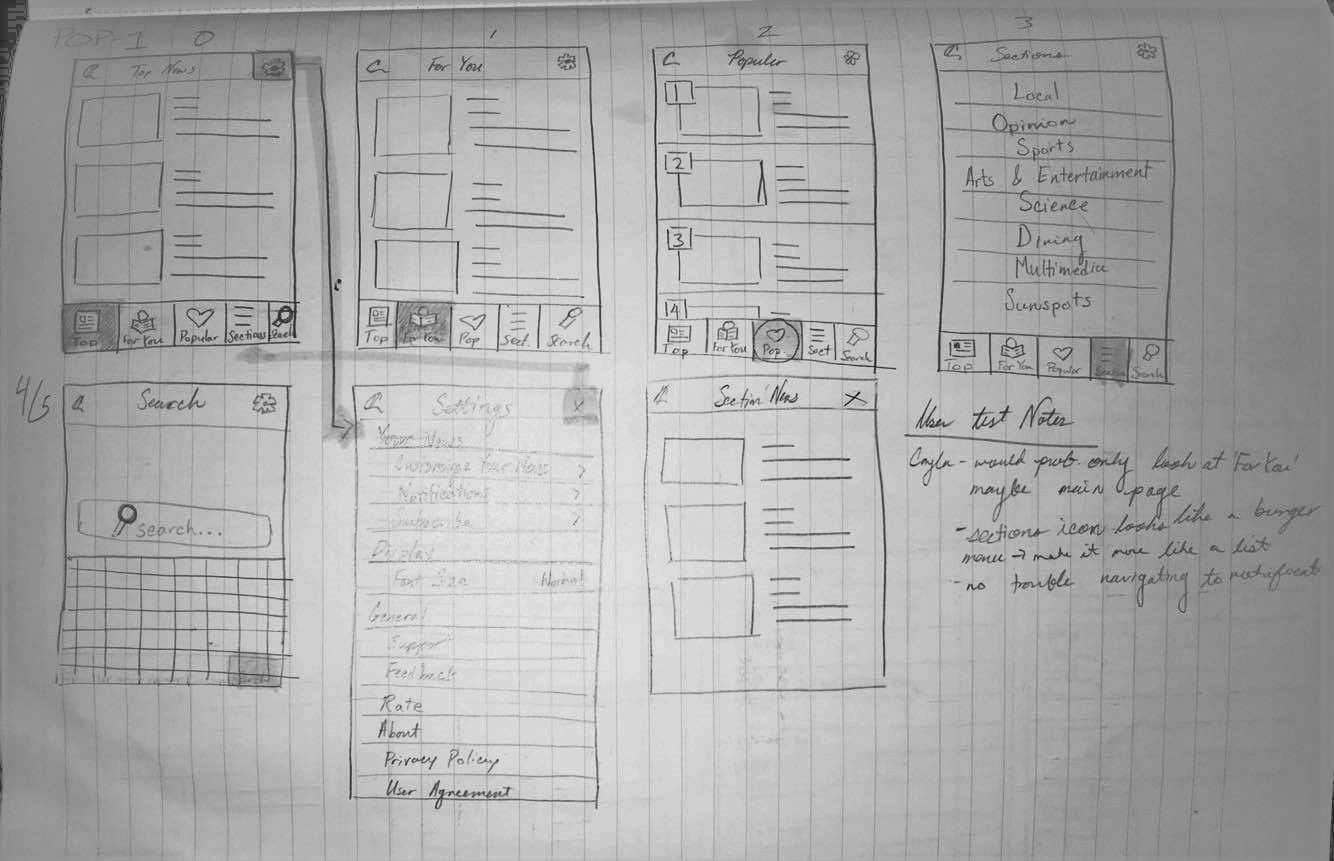 POP-1 0
1
2
3
Top News
Top
For You
Popular
Sections
Search
For You
Top
For You
Pop
Sect.
Search
Popular
1
2
3
4
Top
For You
Pop.
Sect
Search
Sections
Local
Opinion
Sports
Arts & Entertainment
Science
Dining
Multimedia
Sunspots
Top
For You
Popular
Search
4/5
Search
search...
Settings
X
Your News
Customize Your News >
Notifications >
Subscribe >
Display
Font Size Normal
General
Support
Feedback
Rate
About
Privacy Policy
User Agreement
'Section' News X
User test Notes
- would prob. only look at 'For You'
maybe main page
- sections icon looks like a burger
menu → make it more like a list
- no trouble navigating to